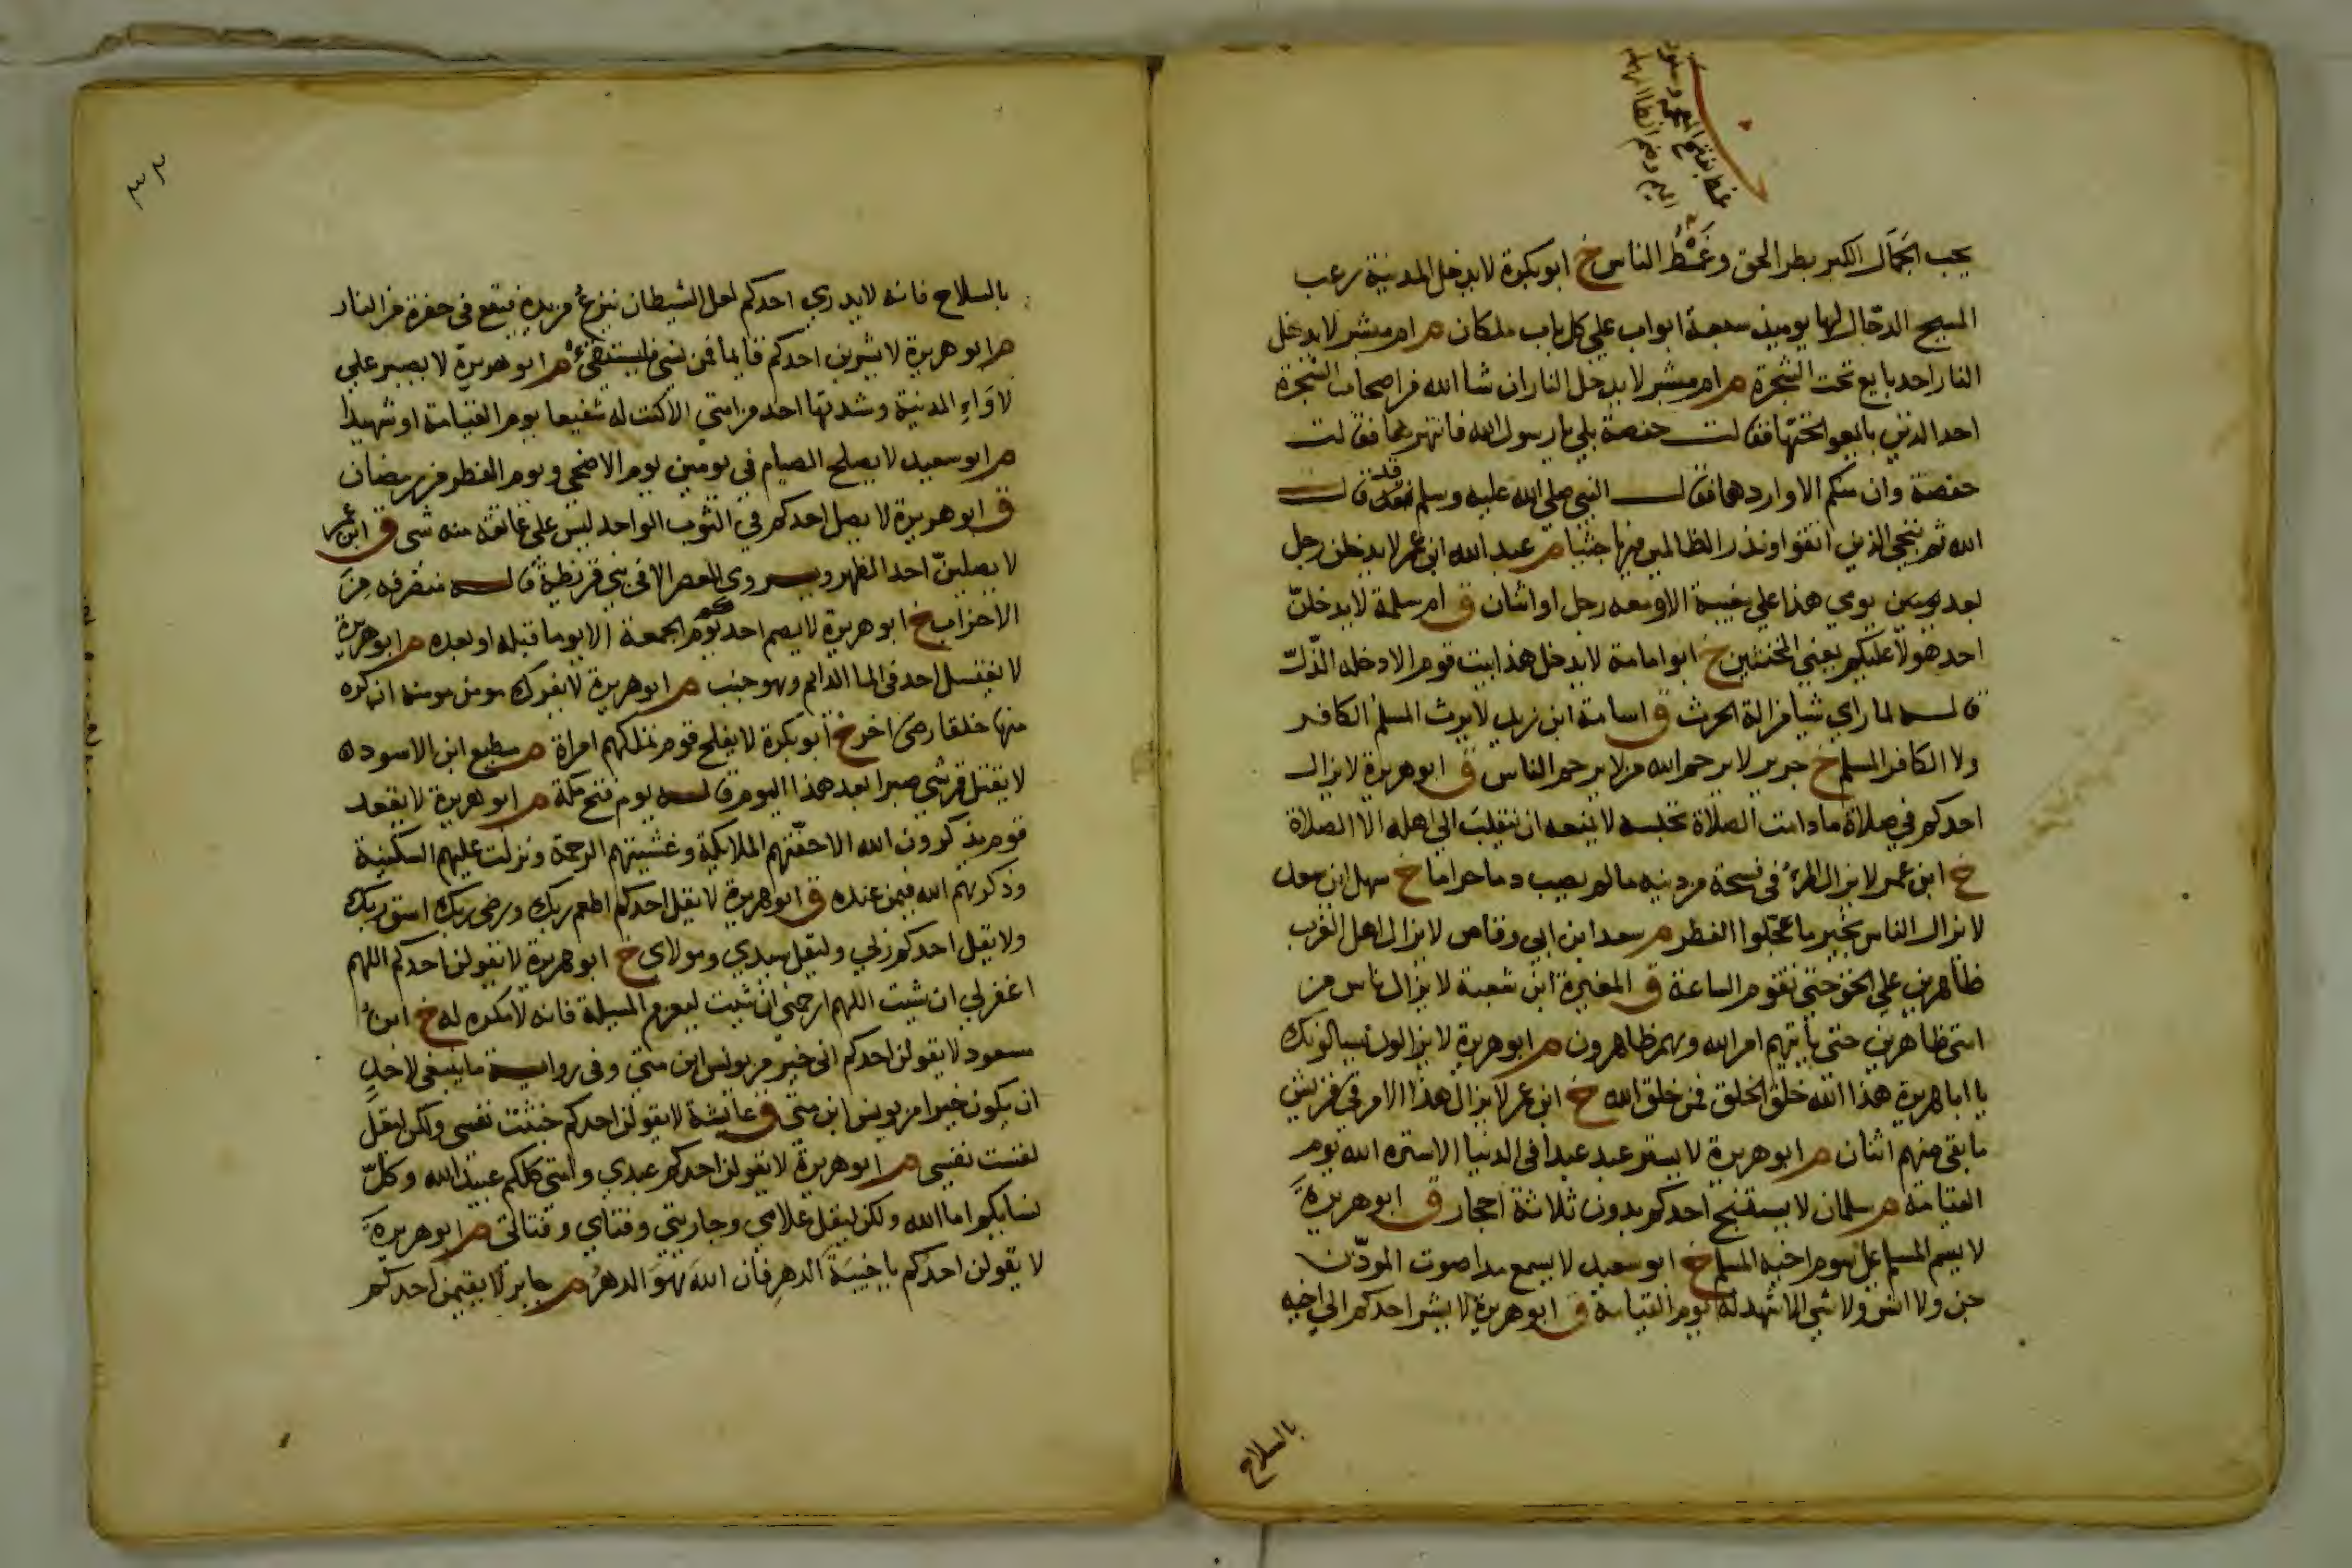 غمط بفتح المعجمة وسكون
الميم وضم الطا المهملة
يحب الجمال الكبر بطر الحق وغمط الناس خ ابو بكرة لا يدخل المدينة رعب
المسيح الدجّال لها يوميذ سبعة ابواب علي كل باب ملكان م ام مبشر لا يدخل
النار احد بايع تحت الشجرة م ام مبشر لا يدخل النار ان شا الله من اصحاب الشجرة
احد الذين بايعوا تحتها فقالت حفصة بلي يا رسول الله فانتهرها فقالت
حفصة وان منكم الا واردها فقال النبي صلي الله عليه وسلم قد قال
الله ثم ننجي الذين اتقوا ونذر الظالمين فيها جثيا م عبد الله ابن عمر لا يدخلن رجل
بعد يومين يومي هذا علي مغيبة الا ومعه رجل او اثنان ق ام سلمة لا يدخلنّ
احد هولا عليكم يعني المخنثين خ ابو امامة لا يدخل هذا بيت قوم الا دخله الذّلّ
قاله لما راي شيا من الة الحرث ق اسامة ابن زيد لا يرث المسلم الكافر
ولا الكافر المسلم خ جرير لا يرحم الله من لا يرحم الناس ق ابو هريرة لا يزال
احدكم في صلاة ما دامت الصلاة تحبسه لا يمنعه ان ينقلب الي اهله الا الصلاة
خ ابن عمر لا يزال المرء في فسحة من دينه ما لم يصب دما حراما خ سهل ابن سعد
لا يزال الناس بخير ما عجّلوا الفطر م سعد ابن ابي وقاص لا يزال اهل الغرب
ظاهرين علي الحق حتي تقوم الساعة ق المغيرة ابن شعبة لا يزال ناس من
امتي ظاهرين حتي ياتيهم امر الله وهم ظاهرون م ابو هريرة لا يزالون يسالونك
يا ابا هريرة هذا الله خلق الخلق فمن خلق الله خ ابن عمر لا يزال هذا الامر في قريش
ما بقي منهم اثنان م ابو هريرة لا يستر عبد عبدا في الدنيا الا ستره الله يوم
القيامة م سلمان لا يستنج احدكم بدون ثلاثة احجار ق ابو هريرةَ
لا يسم المسلم علي سوم اخيه المسلم خ ابو سعيد لا يسمع مدا صوت الموذّن
جن ولا انس ولا شي الا شهد له يوم القيامة ق ابو هريرة لا يشر احدكم الي اخيه
بالسلاح
٣٣
بالسلاح فانه لا يدري احدكم لعل الشيطان ينزغ من يده فيقع في حفرة من النار
م ابو هريرة لا يشربن احدكم قايما فمن نسي فليستقئ م ابو هريرة لا يصبر علي
لاواءِ المدينة وشدتها احد من امتي الا كنت له شفيعا يوم القيامة او شهيدا
م ابو سعيد لا يصلح الصيام في يومين يوم الاضحي ويوم الفطر من رمضان
ق ابو هريرة لا يصل احدكم في الثوب الواحد ليس علي عاتقه منه شي ق ابن عمر
لا يصلينّ احد الظهر ويروي العصر الا في بني قريظة قاله منصرفه من
الاحزاب خ ابو هريرة لا يصم احدكم يوم الجمعة الا يوما قبله او بعده م ابو هريرة
لا يغتسل احد في الما الدايم وهو جنب م ابو هريرة لا يفرك مومن مومنة ان كره
منها خلقا رضي اخر خ ابو بكرة لا يفلح قوم تملكهم امراة م مطيع ابن الاسود
لا يقتل قرشي صبرا بعد هذا اليوم قاله يوم فتح مكة م ابو هريرة لا يقعد
قوم يذكرون الله الا حفّتهم الملايكة وغشيتهم الرحمة ونزلت عليهم السكينة
وذكرهم الله فيمن عنده ق ابو هريرة لا يقل احدكم اطعم ربك وضي ربك اسق ربك
ولا يقل احدكم ربي وليقل سيدي ومولاي خ ابو هريرة لا يقولن احدكم اللهم
اغفر لي ان شيت اللهم ارحمني ان شيت ليعزم المسيلة فانه لا مكره له خ ابن
مسعود لا يقولن احدكم اني خير من يونس ابن متي وفي رواية ما ينبغي لاحدٍ
ان يكون خيرا من يونس ابن متي ق عايشة لا يقولن احدكم خبثت نفسي ولكن ليقل
لقست نفسي م ابو هريرة لا يقولن احدكم عبدي وامتي كلكم عبيد الله وكلّ
نسايكم اما الله ولكن ليقل غلامي وجاريتي وفتاي وفتاتي م ابو هريرةَ
لا يقولن احدكم يا خيبةَ الدهر فان اللهَ هوَ الدهرُ م جابر لا يقيمن احدكم